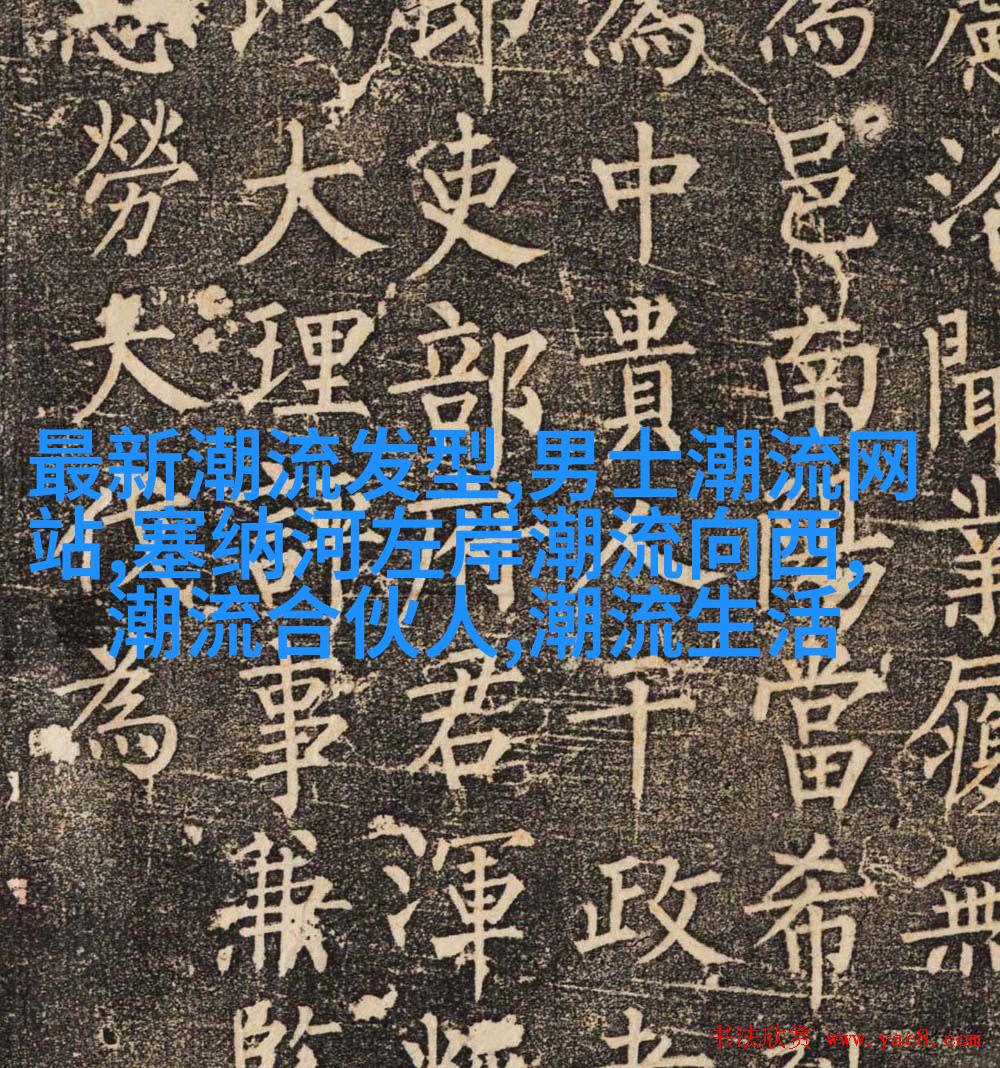 最新潮流发型,男士潮流网
站,塞纳河左岸潮流向西,
潮流合伙人,潮流生活
洽聞履無
為邑南陽當希
為中貴人干政
郎吏部君渾
以大理事兼監
勞大為
书法欣赏 www.yac8.com